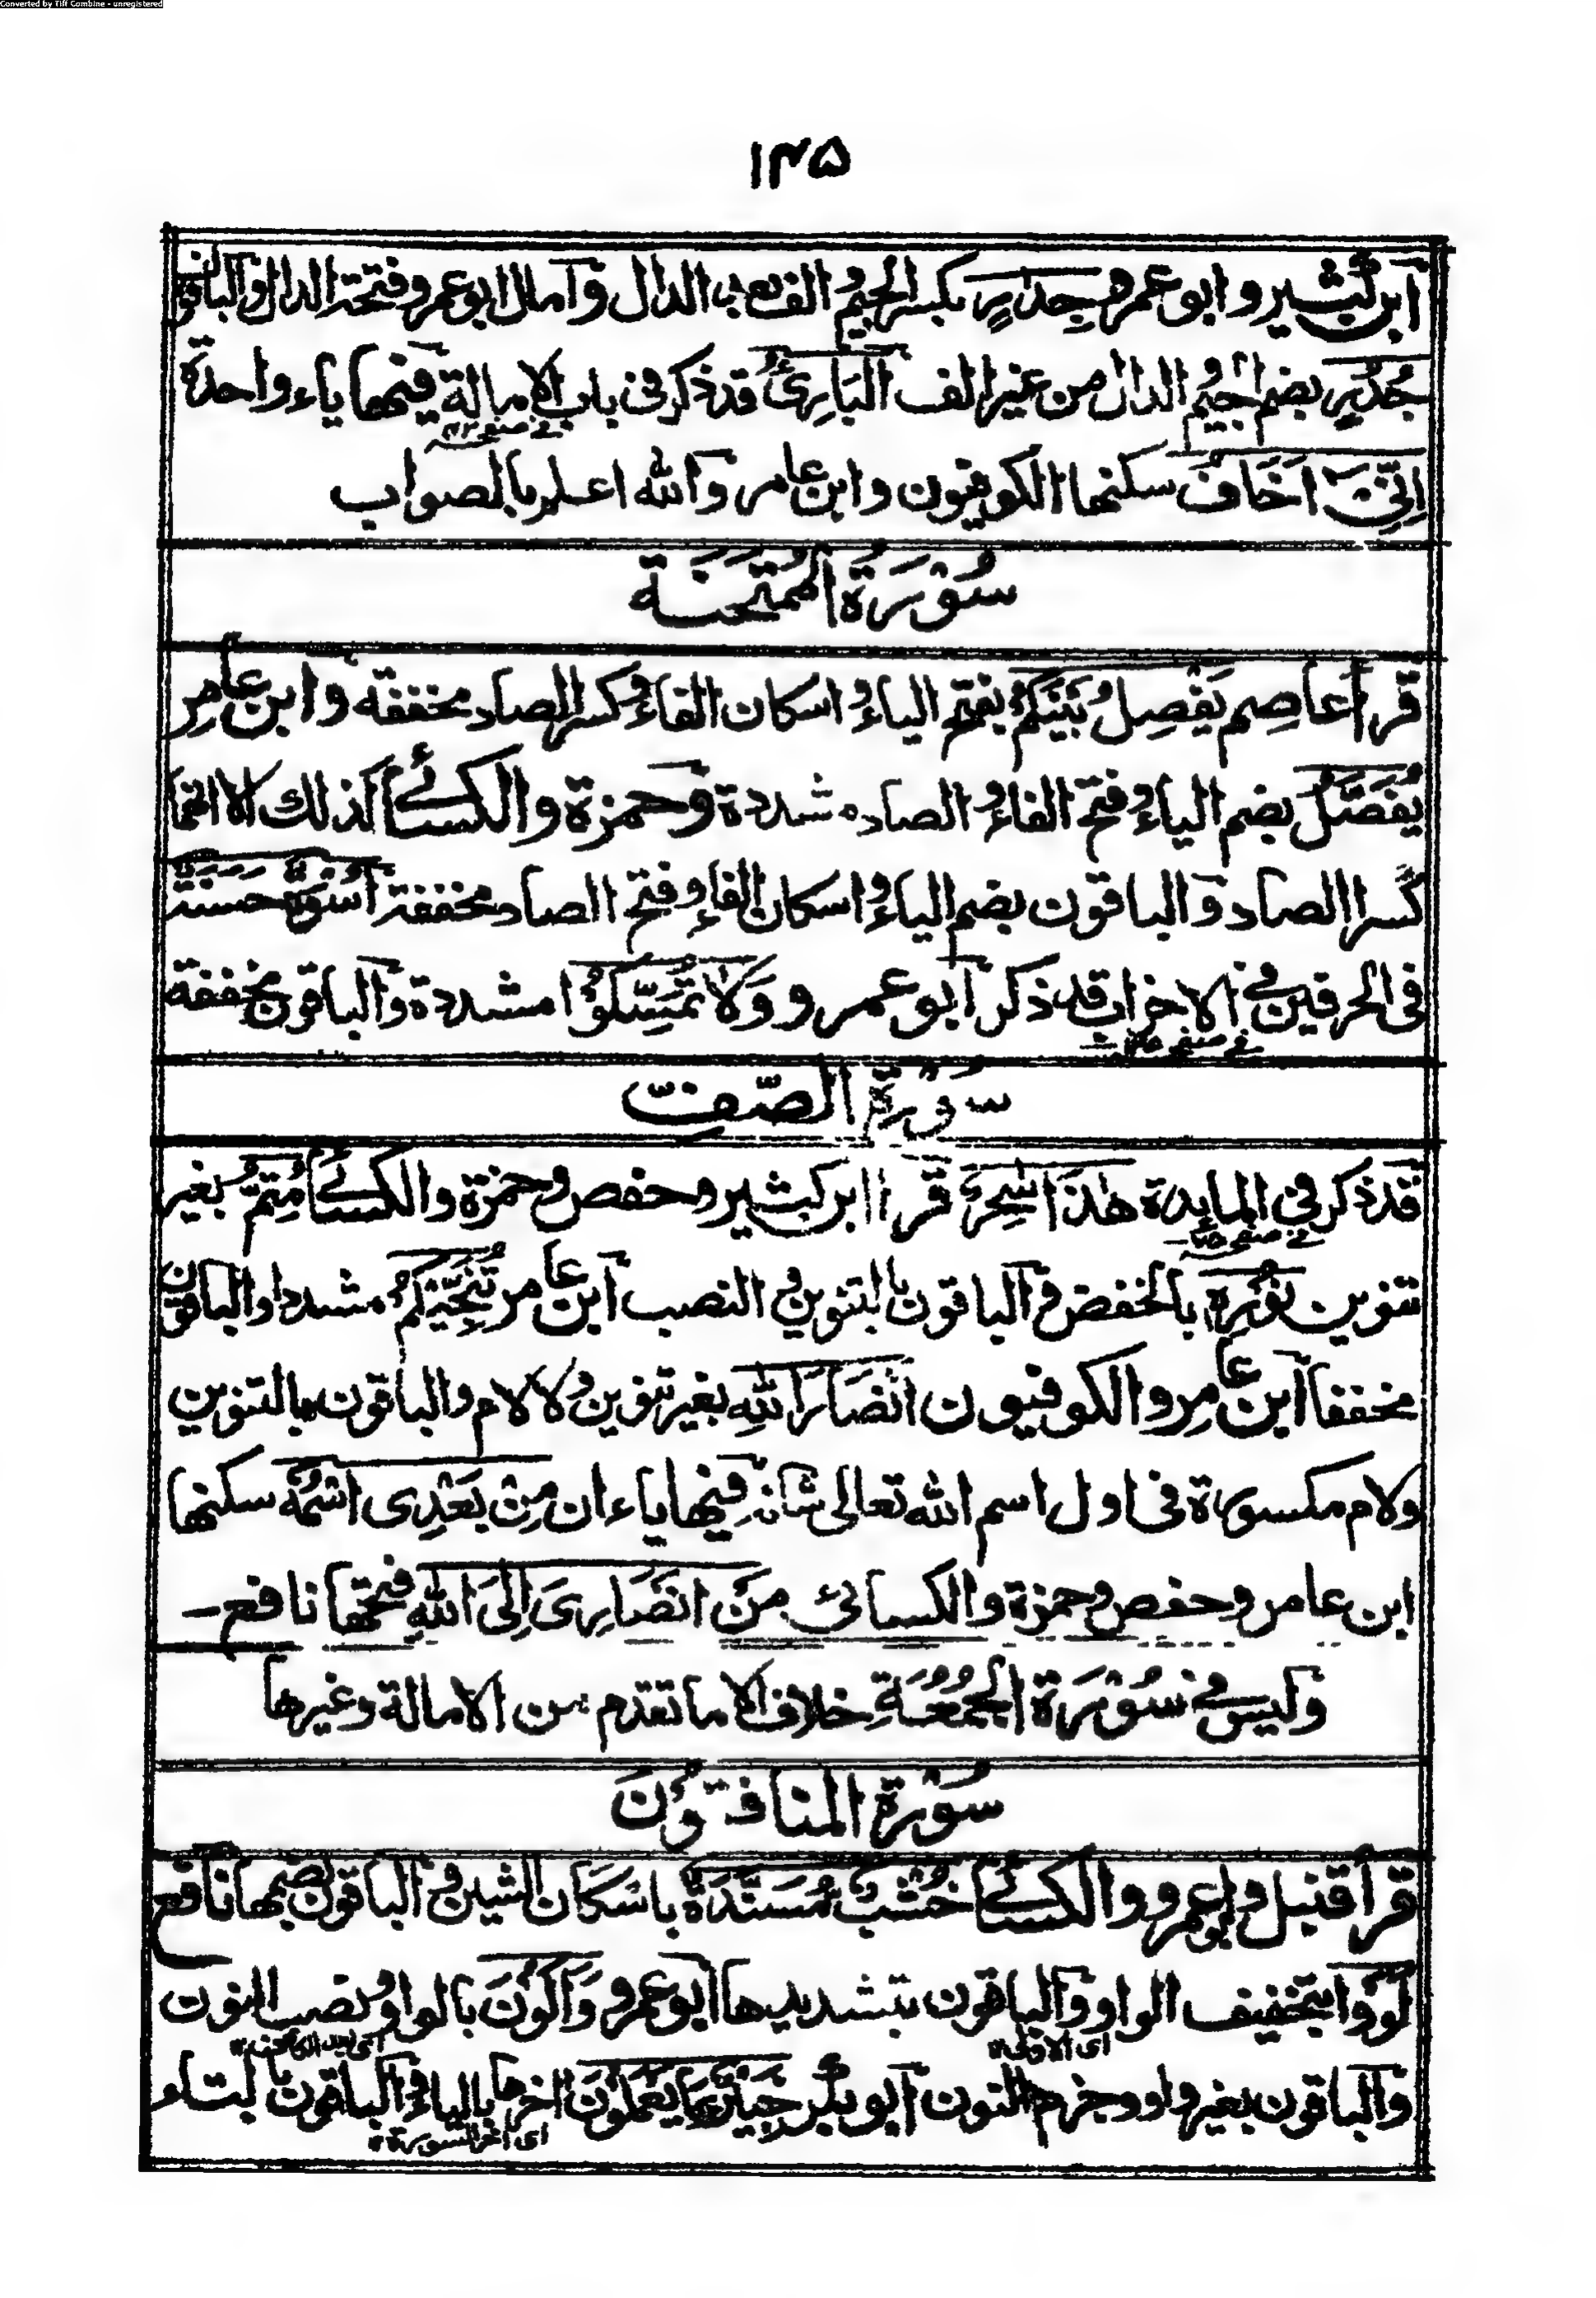 Converted by Tiff Combine - unregistered
۱۳۵
ابن كثير وابو عمرو جِدَارٍ بكسر الجيم والف بعد الدال وامال ابو عمرو فتحة الدال والباقون
جُدُرٍ بضم الجيم والدال من غير الف البَارِئُ قد ذكر فى باب الامالة فيها ياء واحدة
اِنِّىَ اَخَافُ سكنها الكوفيون وابن عامر والله اعلم بالصواب
سُوْرَةُ الْمُمْتَحَنَة
قرأ عاصم يَفْصِلُ بَيْنَكُمْ بفتح الياء واسكان الفاء وكسر الصاد مخففة وابن عامِر
يُفَصَّلُ بضم الياء وفتح الفاء والصاد مشددة وحمزة والكسائے كذلك الا انهما
كسرا الصاد والباقون بضم الياء واسكان الفاء وفتح الصاد مخففة اُسْوَةٌ حَسَنَةٌ
فى الحرفين فے الاحزاب قد ذكر ابو عمرو وَلَا تُمَسِّكُوْا مشددة والباقون مخففة
فے صفحه
سُوْرَةُ الصّفّ
قد ذكر فى المايدة هٰذَا سٰحِرٌ قرأ ابن كثير وحفص وحمزة والكسائے مُتِمُّ بغير
فے صفحه
تنوين نُوْرِهٖ بالخفض والباقون بالتنوين والنصب ابن عامر تُنَجِّيْكُمْ مشددا والباقون
مخففا ابن عامِر والكوفيون اَنْصَارَ اللهِ بغير تنوين ولا لام والباقون بالتنوين
ولام مكسورة فى اول اسم الله تعالى شانه فِيْها ياء ان مِنْ بَعْدِى اسْمُهٗ سكنها
ابن عامر وحفص وحمزة والكسائى مَنْ اَنْصَارِىَ اِلَى اللهِ فتحها نافع -
وليس فے سُوْرَةِ الْجُمُعَةِ خلاف الا ما تقدم من الامالة وغيرها
سُوْرَةُ المنافقُوْنَ
قرأ قنبل وابو عمرو والكسائے خُشْبٌ مُسَنَّدَةٌ باسكان الشين والباقون بضمها نافع
لَوَوْا بتخفيف الواو والباقون بتشديدها ابو عمرو وَاَكُوْنَ بالواو ونصب النون
اى الاولى ۱۲
والباقون بغير واو وجزم النون ابو بكر خَبِيْرٌ بِمَا يَعْمَلُوْنَ اخرها بالياء والباقون بالتاء
اى اخر السورة ۱۲